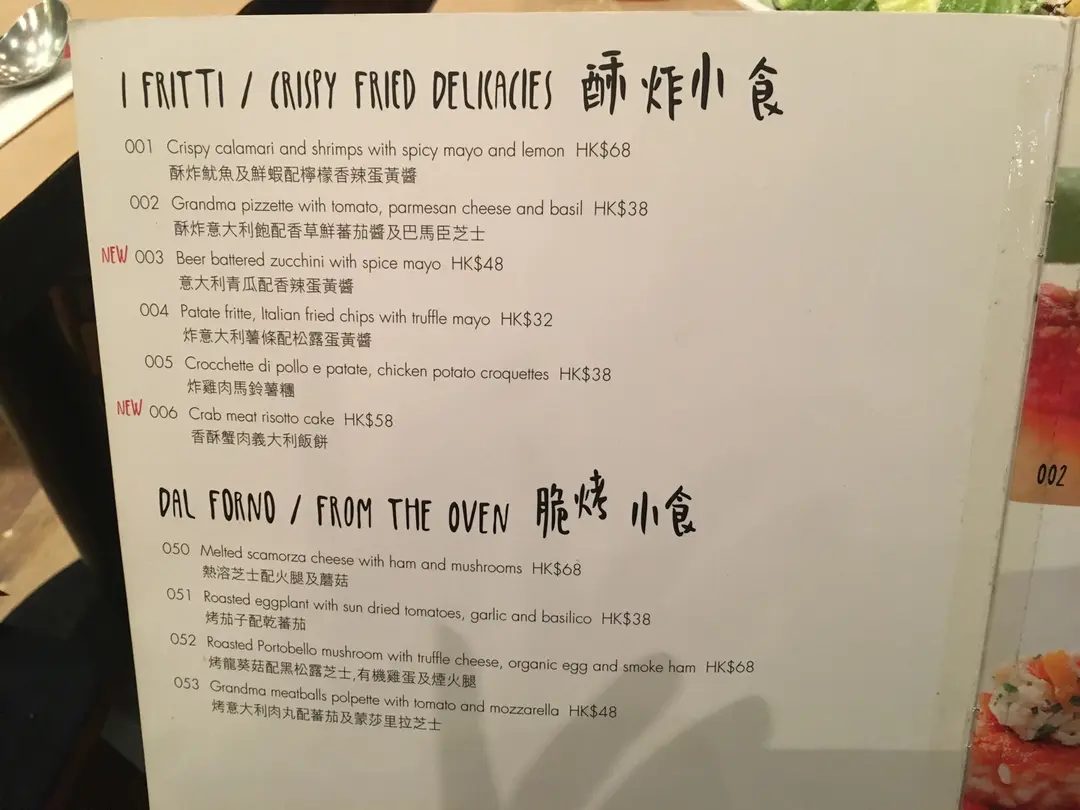 I FRITTI / CRISPY FRIED DELICACIES 酥炸小食
001 Crispy calamari and shrimps with spicy mayo and lemon HK$68
酥炸魷魚及鮮蝦配檸檬香辣蛋黃醬
002 Grandma pizzette with tomato, parmesan cheese and basil HK$38
酥炸意大利飽配香草鮮蕃茄醬及巴馬臣芝士
NEW 003 Beer battered zucchini with spice mayo HK$48
意大利青瓜配香辣蛋黃醬
004 Patate fritte, Italian fried chips with truffle mayo HK$32
炸意大利薯條配松露蛋黃醬
005 Crocchette di pollo e patate, chicken potato croquettes HK$38
炸雞肉馬鈴薯糰
NEW 006 Crab meat risotto cake HK$58
香酥蟹肉義大利飯餅
DAL FORNO / FROM THE OVEN 脆烤小食
050 Melted scamorza cheese with ham and mushrooms HK$68
熱溶芝士配火腿及蘑菇
051 Roasted eggplant with sun dried tomatoes, garlic and basilico HK$38
烤茄子配乾蕃茄
052 Roasted Portobello mushroom with truffle cheese, organic egg and smoke ham HK$68
烤龍葵菇配黑松露芝士,有機雞蛋及煙火腿
053 Grandma meatballs polpette with tomato and mozzarella HK$48
烤意大利肉丸配蕃茄及蒙莎里拉芝士
002